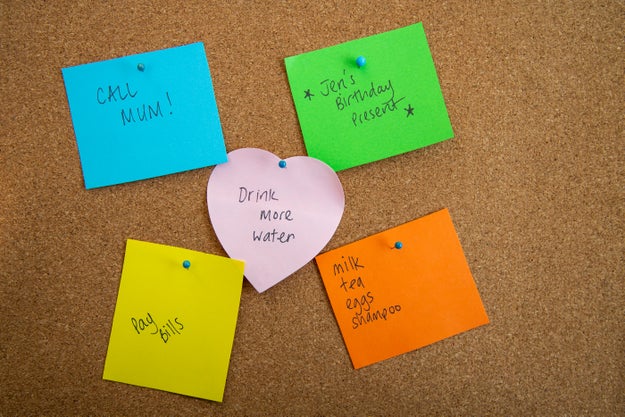 CALL
MUM!
* Jen's
Birthday
Present *
Drink
More
Water
Pay
Bills
milk
tea
eggs
shampoo